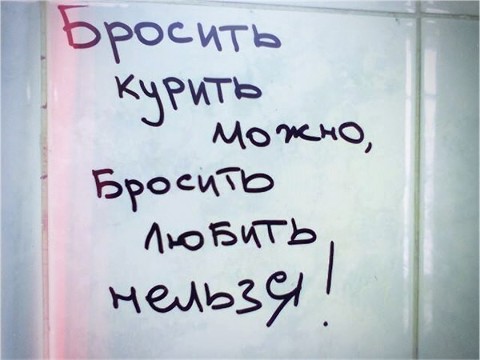 Бросить
курить
можно,
Бросить
любить
нельзя!